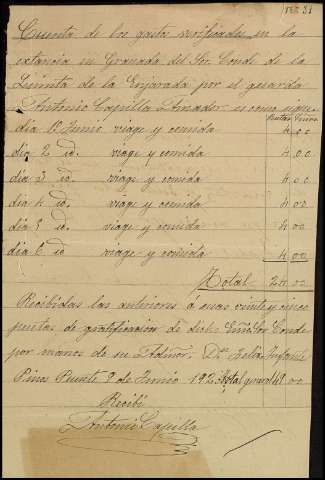 Cuenta de los gastos verificados en la
estancia en Granada del Sor. Conde de la
Quinta de la Enjarada por el guarda
Antonio Capilla Amador es como sigue
dia 1º Junio viage y comida 4 00
dia 2 id. viage y comida 4 00
dia 3 id. viage y comida 4 00
dia 4 id. viage y comida 4 00
dia 5 id. viage y comida 4 00
dia 6 id viage y comida 4 00
Total 24 00
Recibidas las anteriores á mas veinte y cinco
de gratificacion de dicho Sor Conde
por manos de su Admor. Dn Felix Infante
Pinos Puente 9 de Junio 192 total general 49 00
Recibi
Antonio Capilla